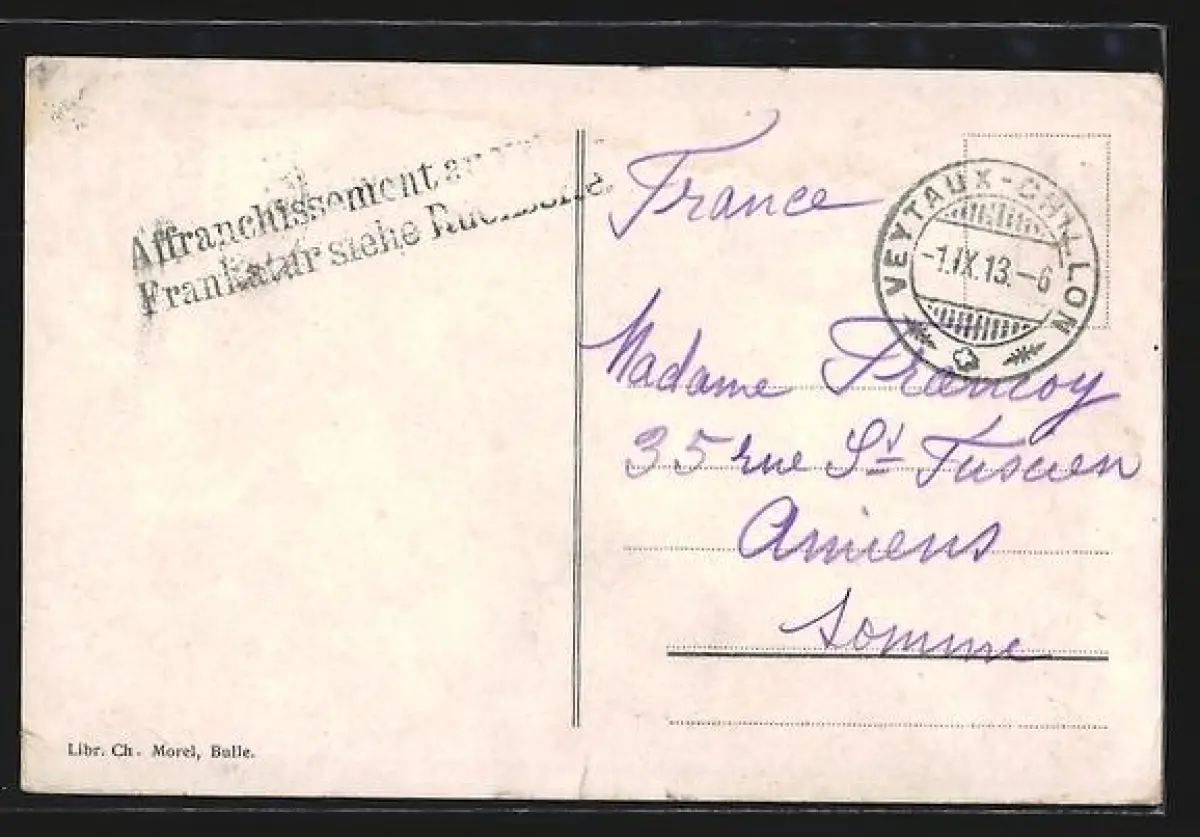 Affranchissement au
Frankatur siehe Rückseite.
France
VEYTAUX-CHILLON
-1.IX.13.-6
Madame Francoy
35 rue St Fuscien
Amiens
Somme
Libr. Ch. Morel, Bulle.